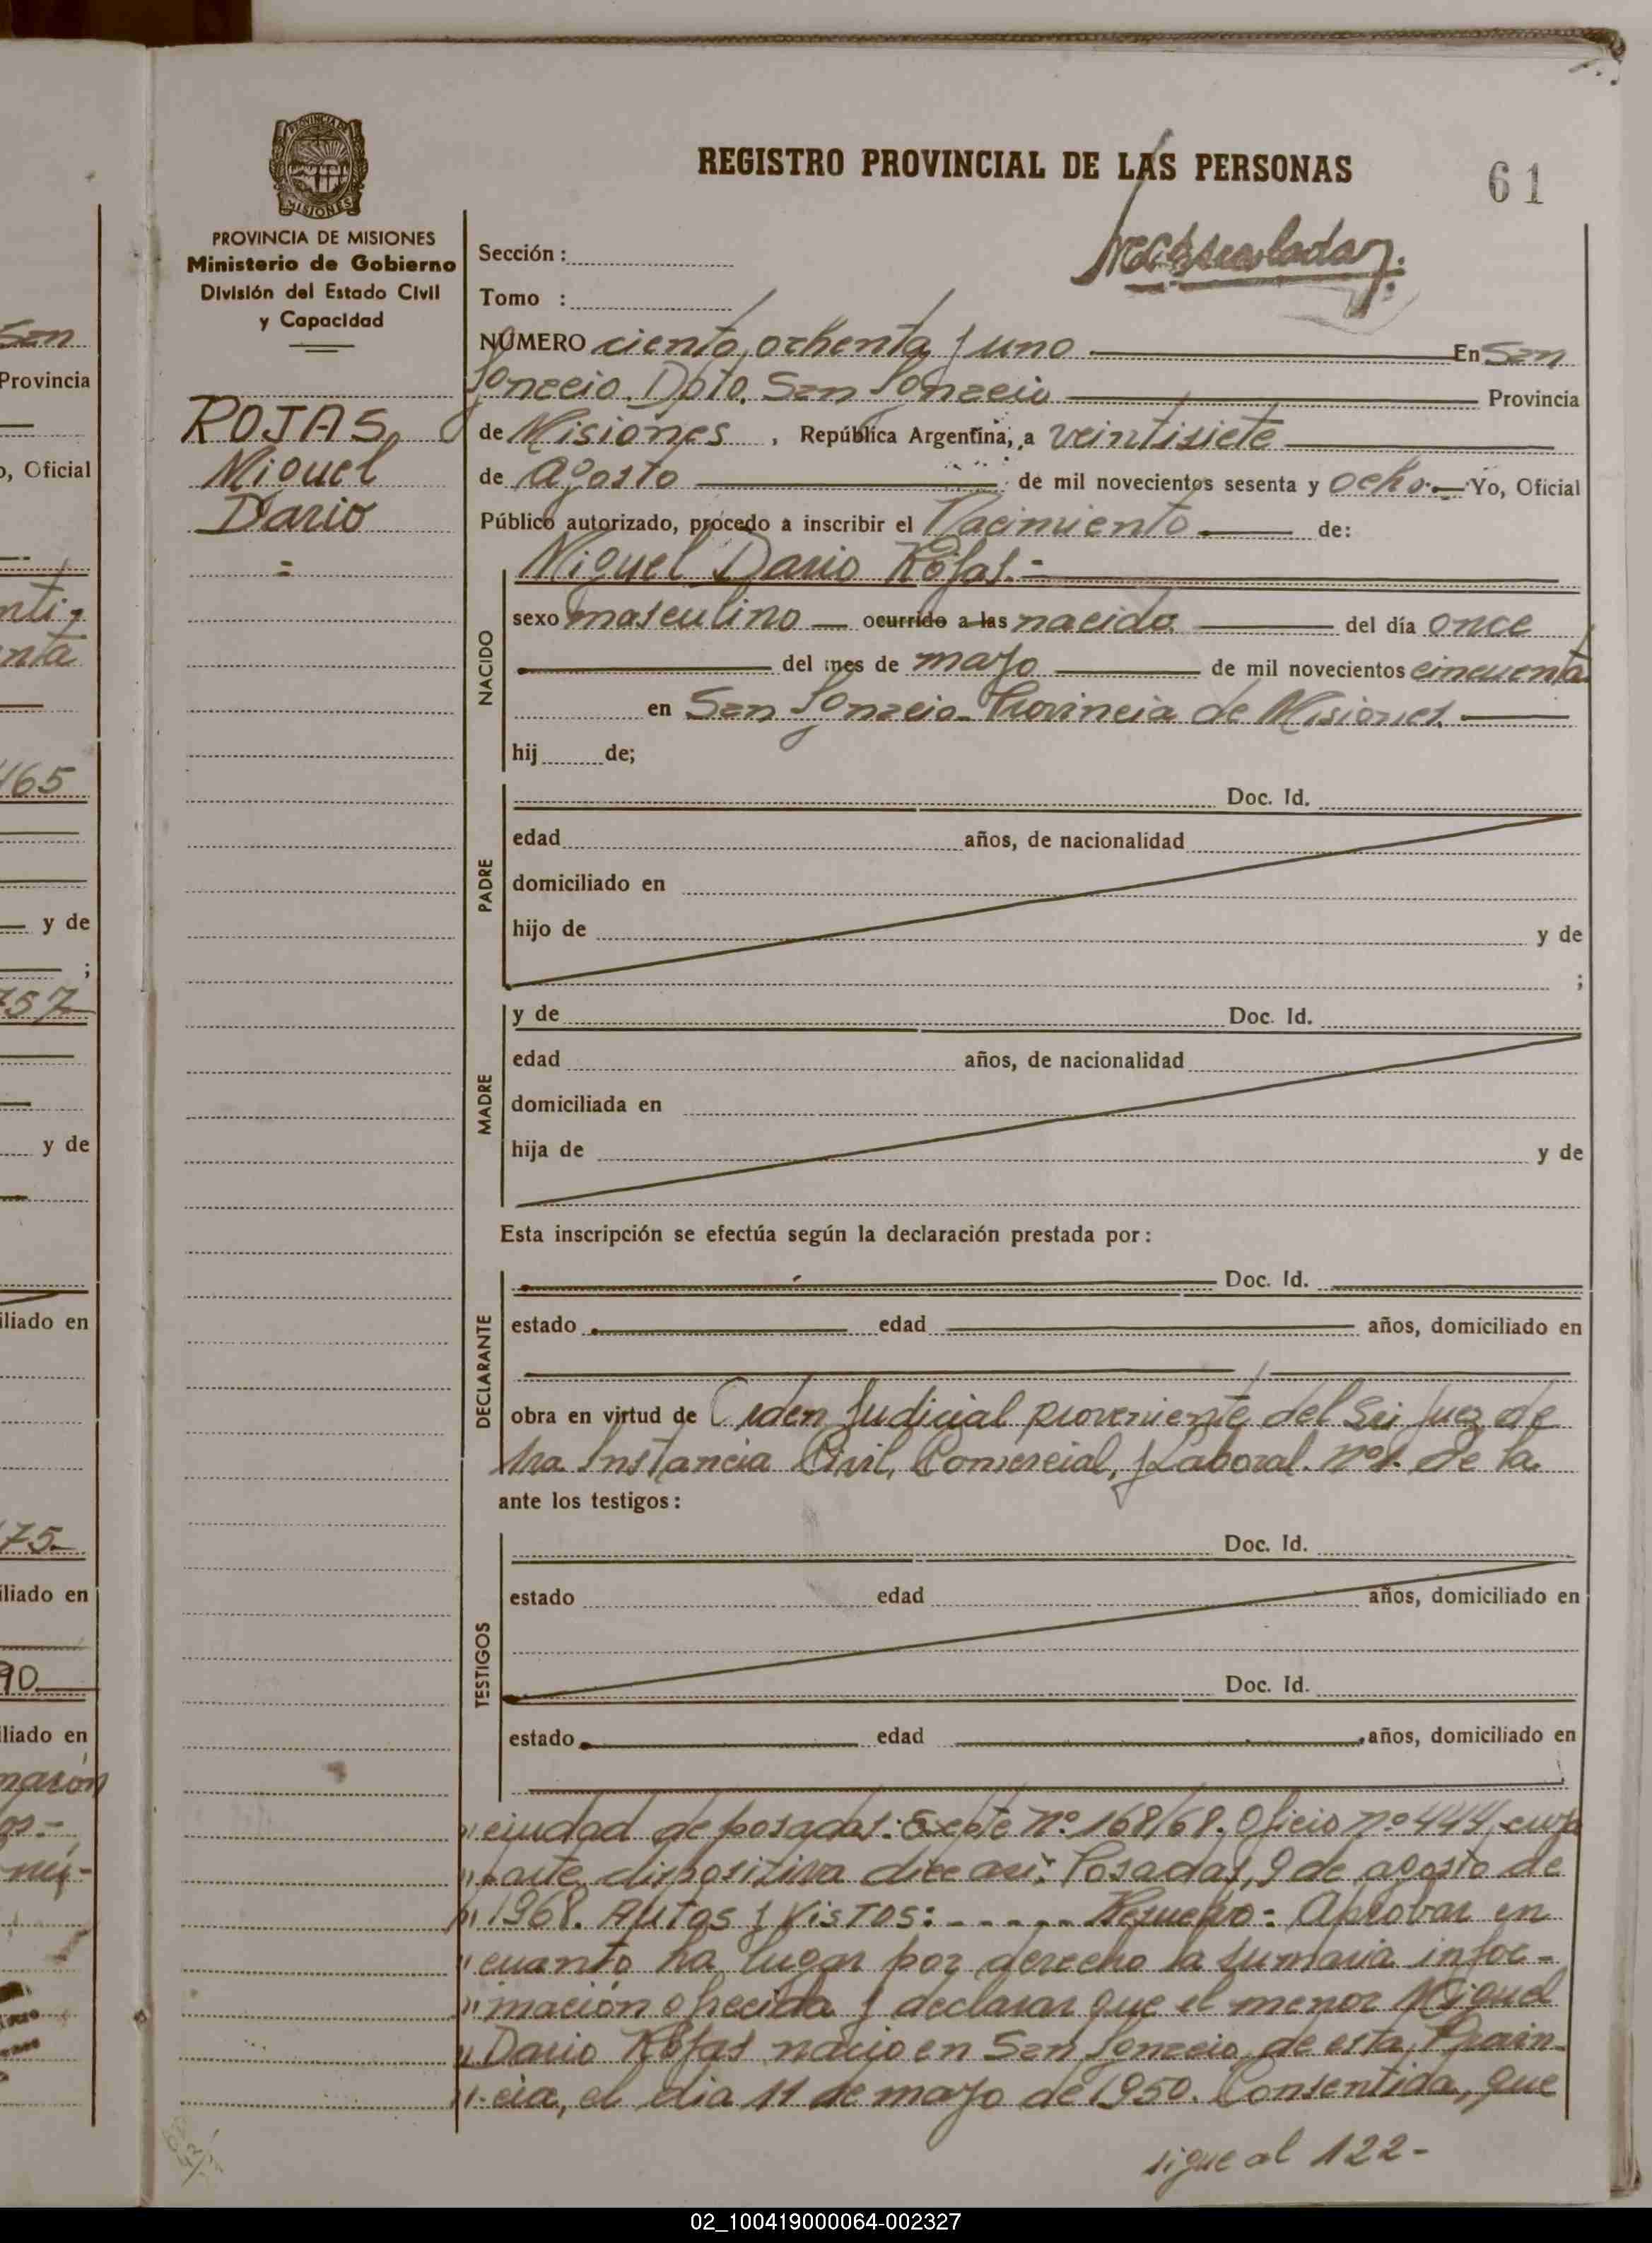 PROVINCIA DE MISIONES
PROVINCIA DE MISIONES
Ministerio de Gobierno
División del Estado Civil
y Capacidad
REGISTRO PROVINCIAL DE LAS PERSONAS
61
Sección :
Tomo :
NÚMERO ciento ochenta y uno En San
Ignacio. Dpto. San Ignacio Provincia
de Misiones , República Argentina, a veintisiete
de agosto de mil novecientos sesenta y ocho. Yo, Oficial
Público autorizado, procedo a inscribir el Nacimiento de:
Miguel Dario Rojas.-
ROJAS,
Miguel
Dario
=
NACIDO
sexo masculino ocurrido a las nacido del día once
del mes de mayo de mil novecientos cincuenta
en San Ignacio Provincia de Misiones.
hij de;
PADRE
Doc. Id.
edad años, de nacionalidad
domiciliado en
hijo de y de
;
MADRE
y de Doc. Id.
edad años, de nacionalidad
domiciliada en
hija de y de
Esta inscripción se efectúa según la declaración prestada por :
DECLARANTE
Doc. Id.
estado edad años, domiciliado en
obra en virtud de Orden Judicial proveniente del Sr. Juez de
1ra Instancia Civil, Comercial, y Laboral. nº1. de la
ante los testigos :
TESTIGOS
Doc. Id.
estado edad años, domiciliado en
Doc. Id.
estado edad años, domiciliado en
" ciudad de posadas. Expte Nº 168/68. Oficio nº 444, cuya
" parte dispositiva dice así: Posadas, 9 de agosto de
" 1968. AUTOS y VISTOS: - - - - - Resuelvo: Aprobar en
" cuanto ha lugar por derecho la sumaria infor-
" mación ofrecida y declarar que el menor Miguel
" Dario Rojas nació en San Ignacio, de esta Provin-
" cia, el dia 11 de mayo de 1950. Consentida, que
sigue al 122-
San
Provincia
o, Oficial
165
y de
;
757
y de
iliado en
75-
iliado en
90
iliado en
02_100419000064-002327